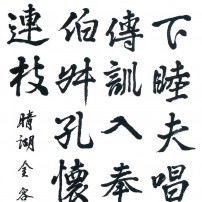 下睦夫唱
傅訓入奉
伯叔孔懷
連枝
晴湖金容